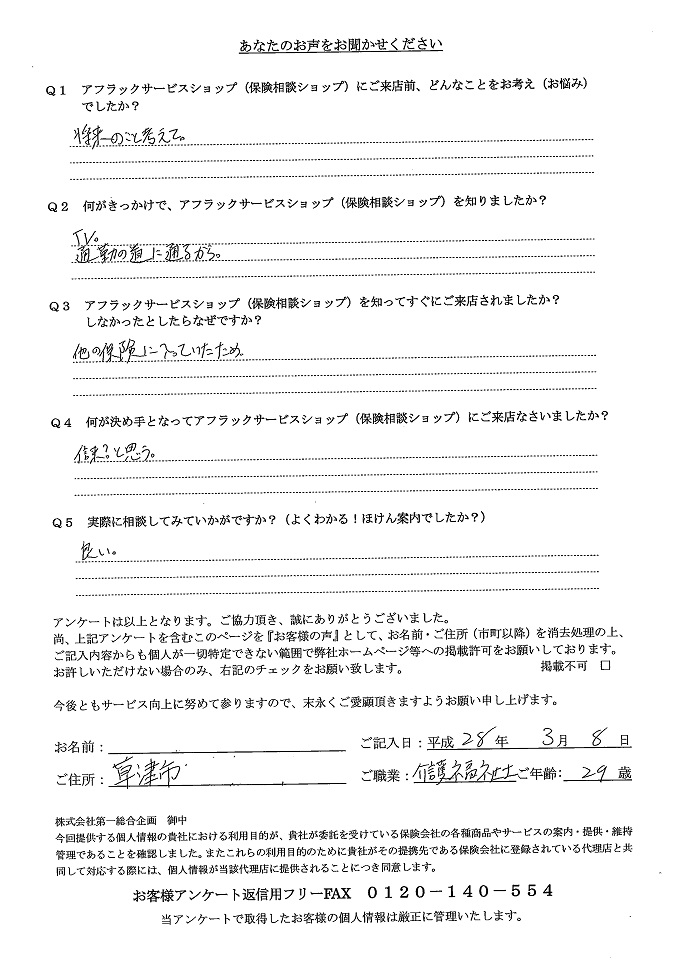 あなたのお声をお聞かせください
Q1 アフラックサービスショップ（保険相談ショップ）にご来店前、どんなことをお考え（お悩み）
でしたか？
将来のこと考えて。
Q2 何がきっかけで、アフラックサービスショップ（保険相談ショップ）を知りましたか？
TV。
通勤の道に通るから。
Q3 アフラックサービスショップ（保険相談ショップ）を知ってすぐにご来店されましたか？
しなかったとしたらなぜですか？
他の保険に入っていたため
Q4 何が決め手となってアフラックサービスショップ（保険相談ショップ）にご来店なさいましたか？
？と思う。
Q5 実際に相談してみていかがですか？（よくわかる！ほけん案内でしたか？）
良い。
アンケートは以上となります。ご協力頂き、誠にありがとうございました。
尚、上記アンケートを含むこのページを『お客様の声』として、お名前・ご住所（市町以降）を消去処理の上、
ご記入内容からも個人が一切特定できない範囲で弊社ホームページ等への掲載許可をお願いしております。
お許しいただけない場合のみ、右記のチェックをお願い致します。 掲載不可 □
今後ともサービス向上に努めて参りますので、末永くご愛顧頂きますようお願い申し上げます。
お名前： ご記入日：平成 28 年 3 月 8 日
ご住所： 草津市 ご職業： 介護福祉士 ご年齢： 29 歳
株式会社第一総合企画 御中
今回提供する個人情報の貴社における利用目的が、貴社が委託を受けている保険会社の各種商品やサービスの案内・提供・維持
管理であることを確認しました。またこれらの利用目的のために貴社がその提携先である保険会社に登録されている代理店と共
同して対応する際には、個人情報が当該代理店に提供されることにつき同意します。
お客様アンケート返信用フリーFAX 0120－140－554
当アンケートで取得したお客様の個人情報は厳正に管理いたします。